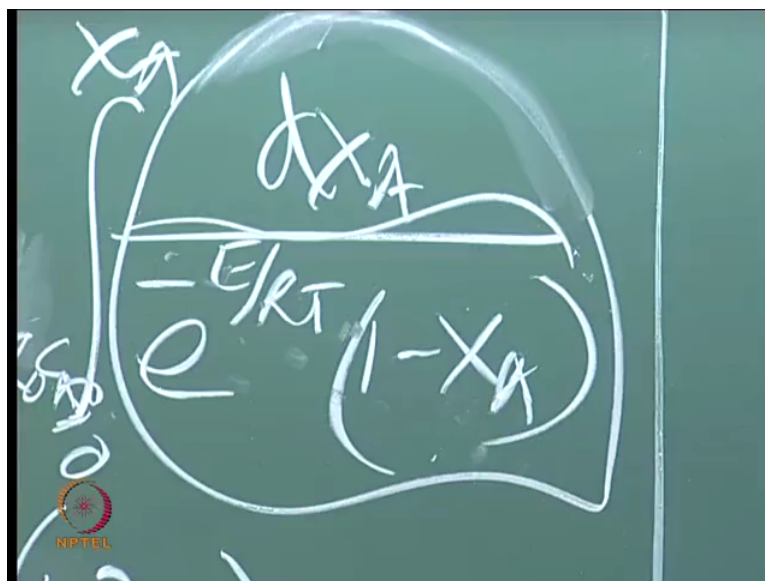 X_A
dX_A
e^{-E/RT} (1 - X_A)
0
NPTEL